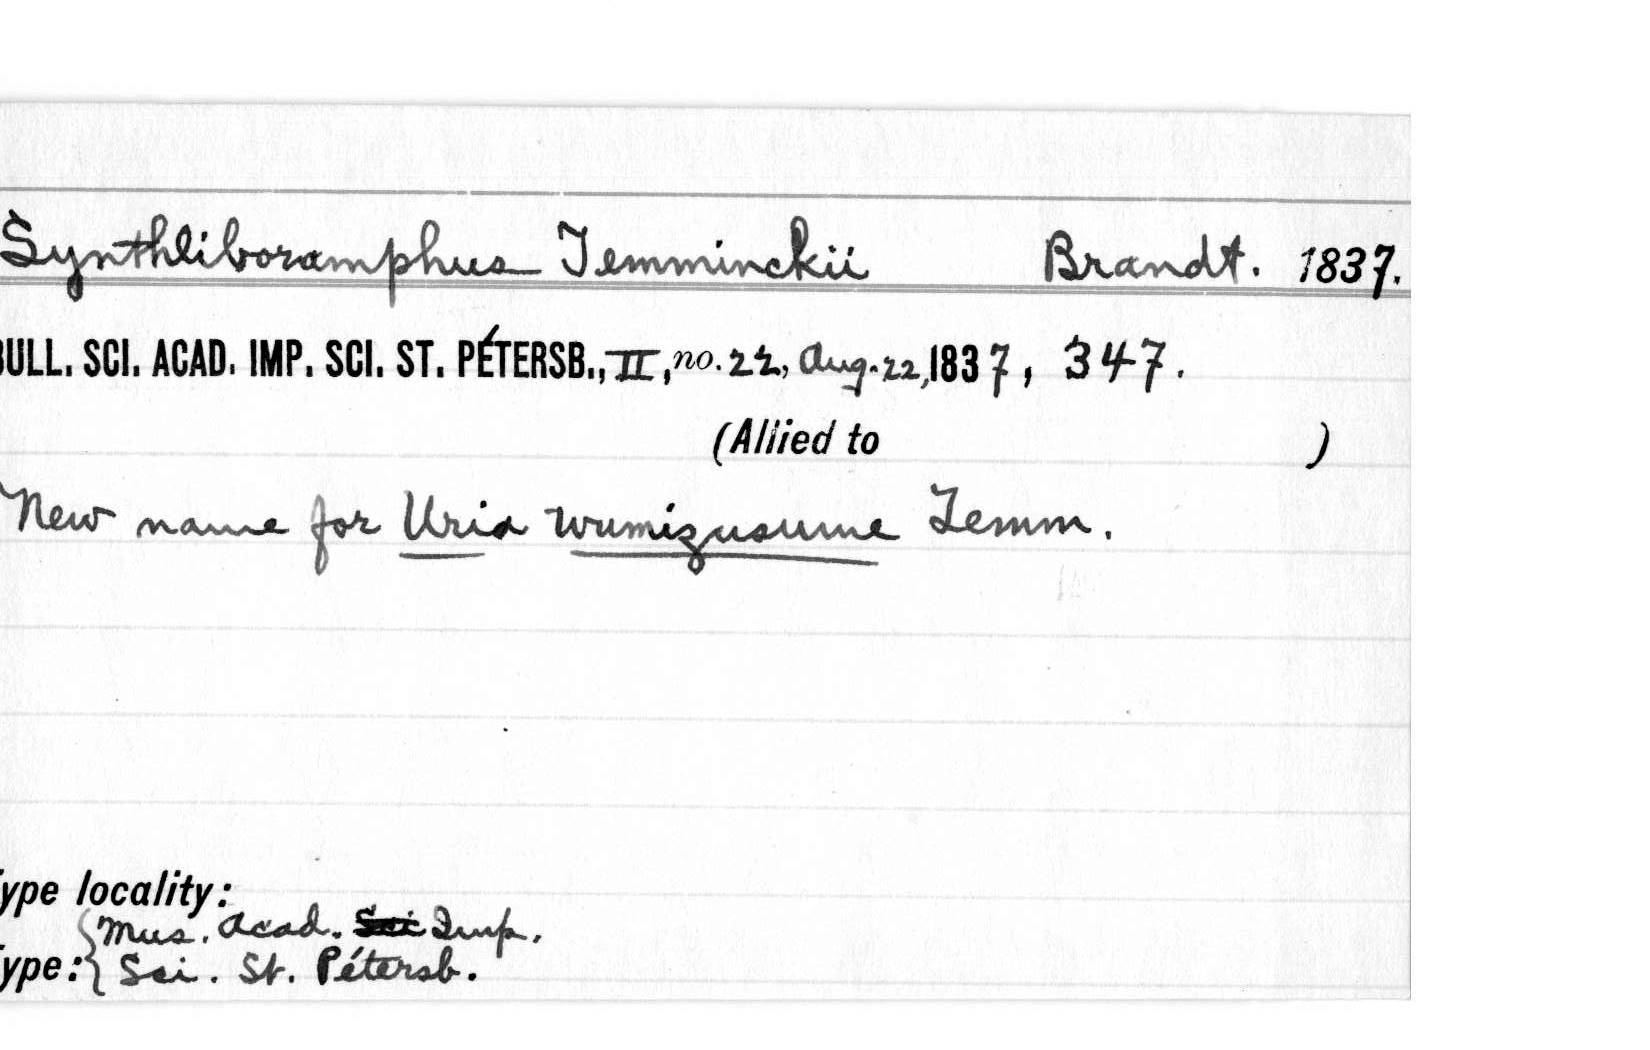 Synthliboramphus Temminckii Brandt. 1837.
BULL. SCI. ACAD. IMP. SCI. ST. PÉTERSB., II, no. 22, Aug. 22, 1837, 347.
(Allied to )
New name for Uria wumizusume Temm.
ype locality:
Mus. Acad. Sci Imp.
ype: Sci. St. Pétersb.